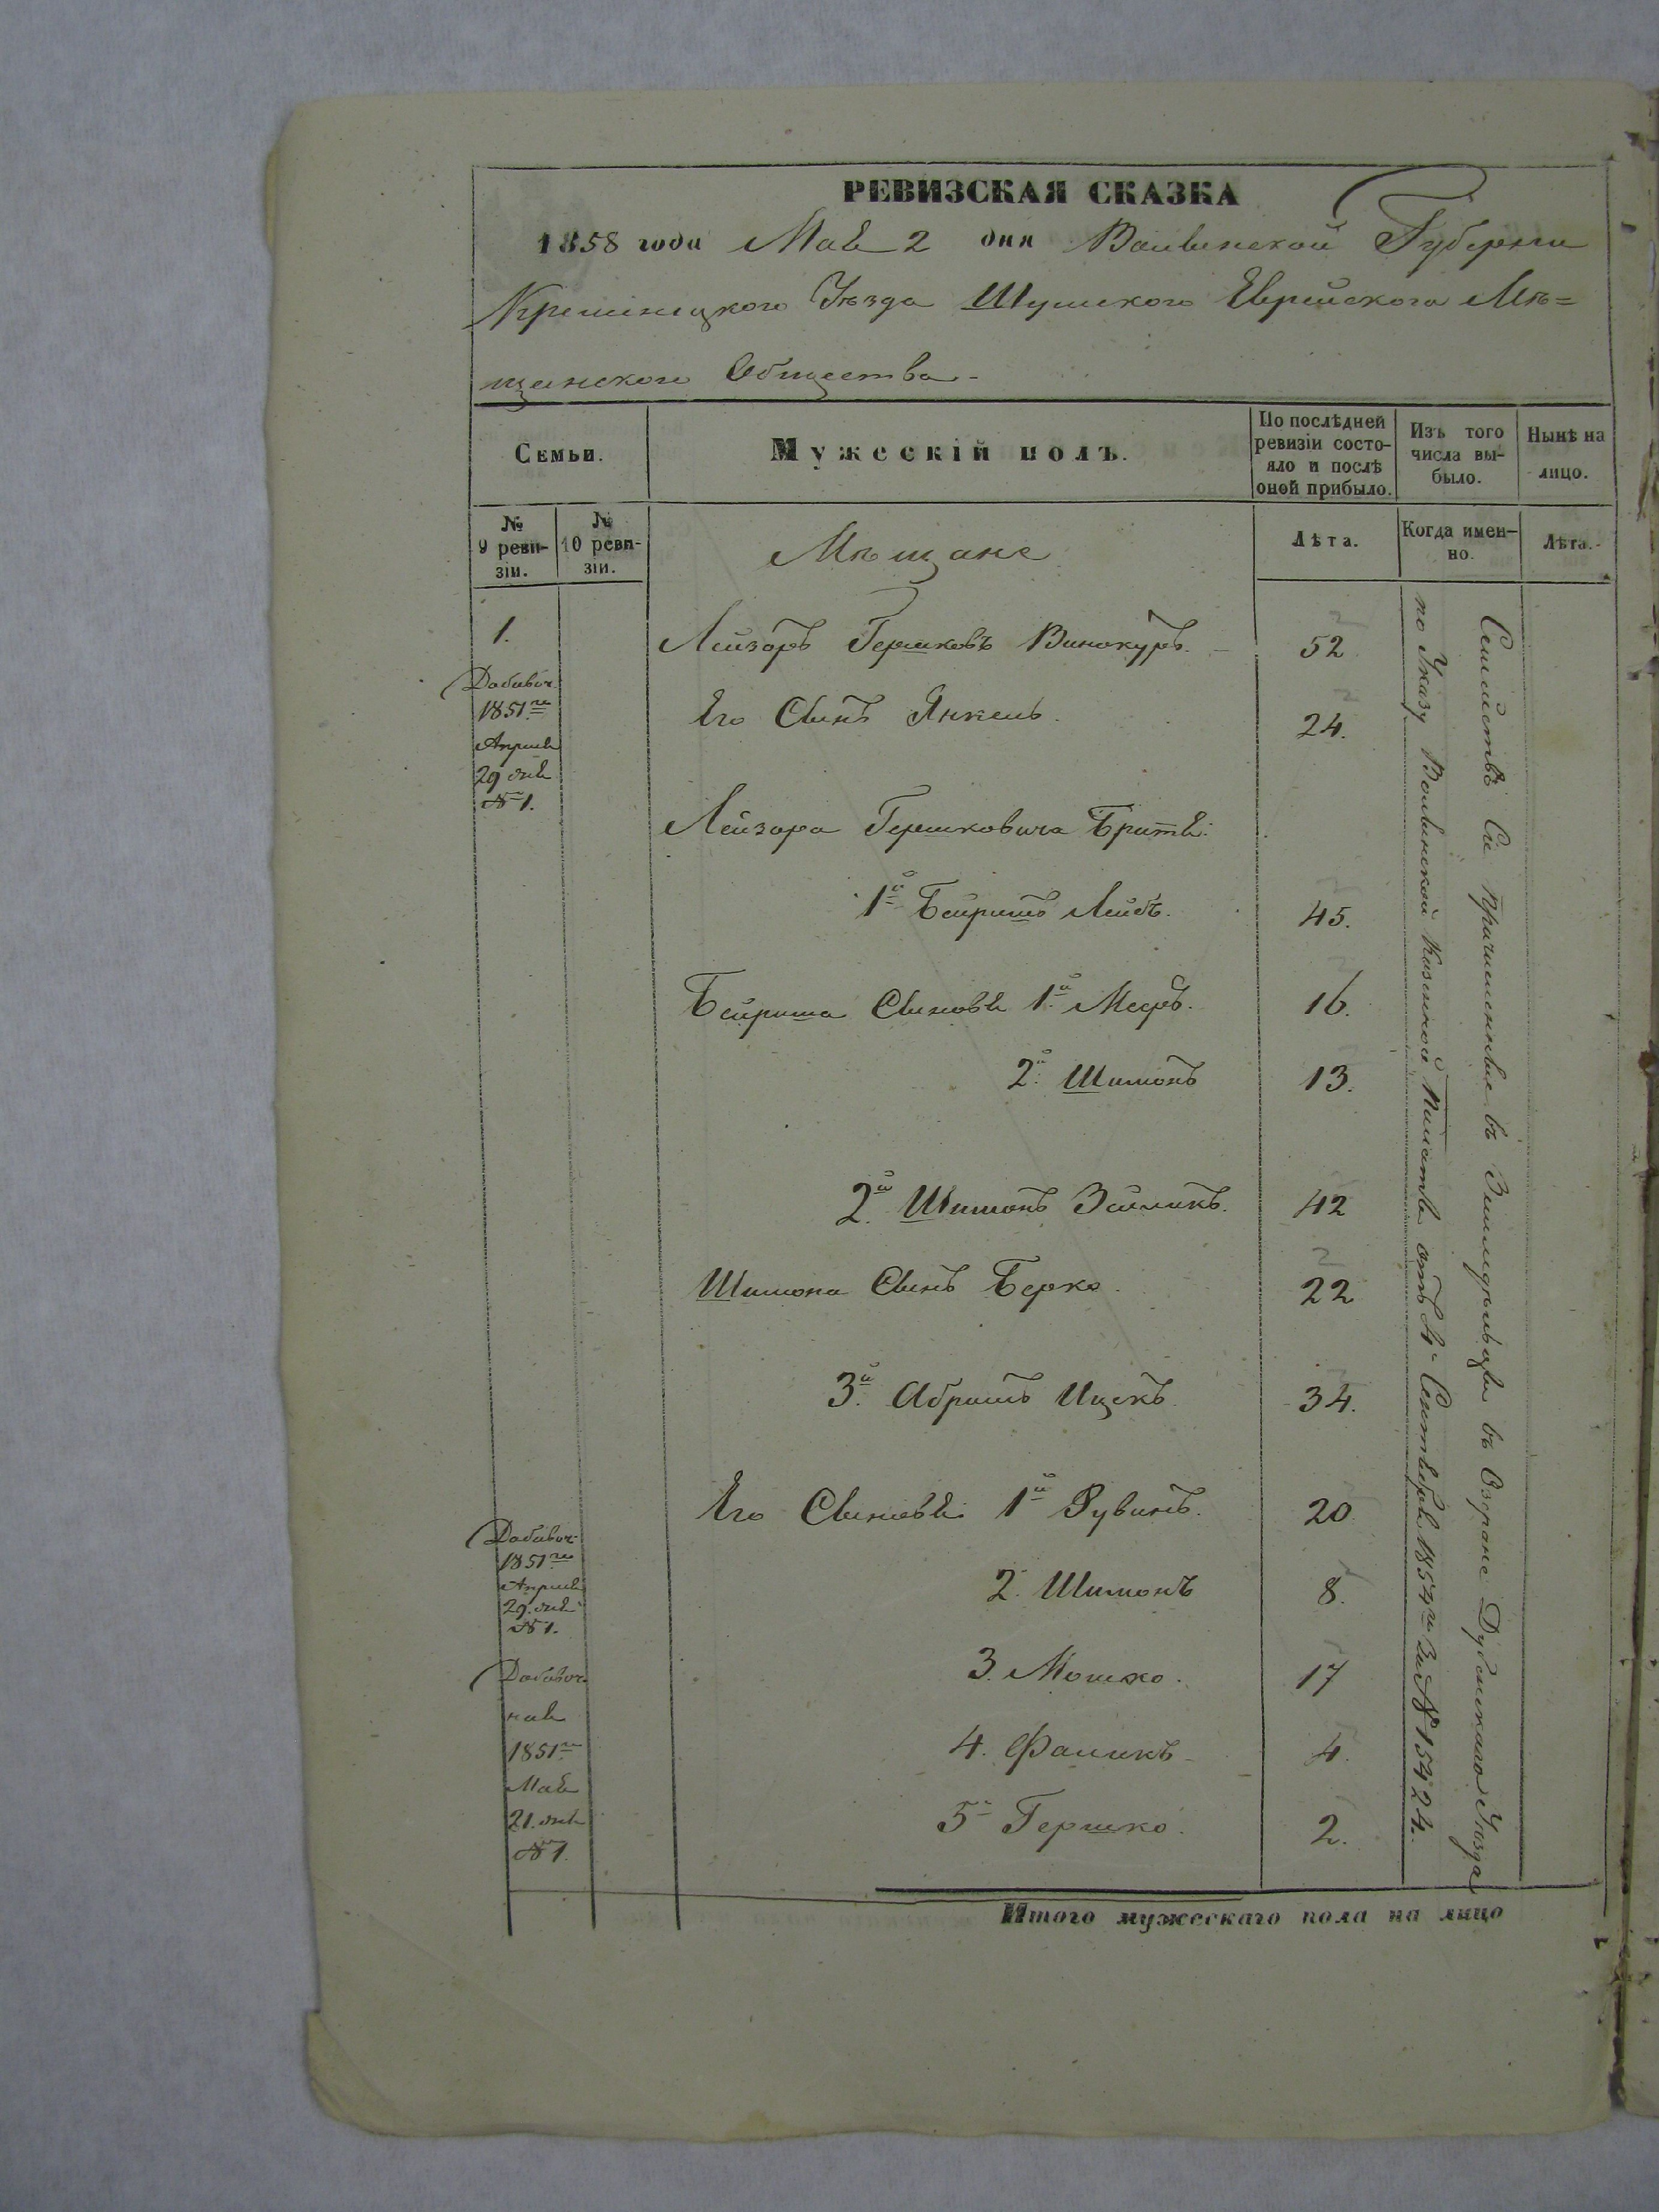 РЕВИЗСКАЯ СКАЗКА
1858 года Мая 2 дня Волынской Губерніи
Кременецкого Уѣзда Шумского Еврейского Мѣ=
щанского Общества
Семьи.
Мужескій полъ.
По послѣдней ревизіи состояло и послѣ оной прибыло.
Изъ того числа выбыло.
Нынѣ на лицо.
№ 9 ревизіи.
№ 10 ревизіи.
Мѣщане
Лѣта.
Когда именно.
Лѣта.
1. Лейзоръ Гершковъ Винокуръ. 52
Добавоч.
1851 го
Апреля
29 дня
№ 1.
Его Сынъ Янкель. 24.
Лейзора Гершковича Братья:
1й Бейришъ Лейбъ. 45.
Бейриша Сыновья 1й Мееръ. 16.
2й Шимонъ 13.
2й Шимонъ Зейликъ. 42
Шимона Сынъ Берко. 22
3й Абрамъ Ицекъ 34.
Его Сыновья: 1й Рувинъ. 20
Добавоч.
1851 го
Апреля
29. дня
№ 1.
2. Шимонъ 8.
3. Мошко. 17
Добавоч
ная
1851 го
Мая
21. дня
№ 1.
4. Фаликъ 4.
5й Гершко. 2.
Семейство Сіе причисленные въ Земледѣльцы въ Озране Дубенскаго Уѣзда
по Указу Волынской Казенной Палаты отъ 4 Сентября 1854 го За № 15424.
Итого мужескаго пола на лицо